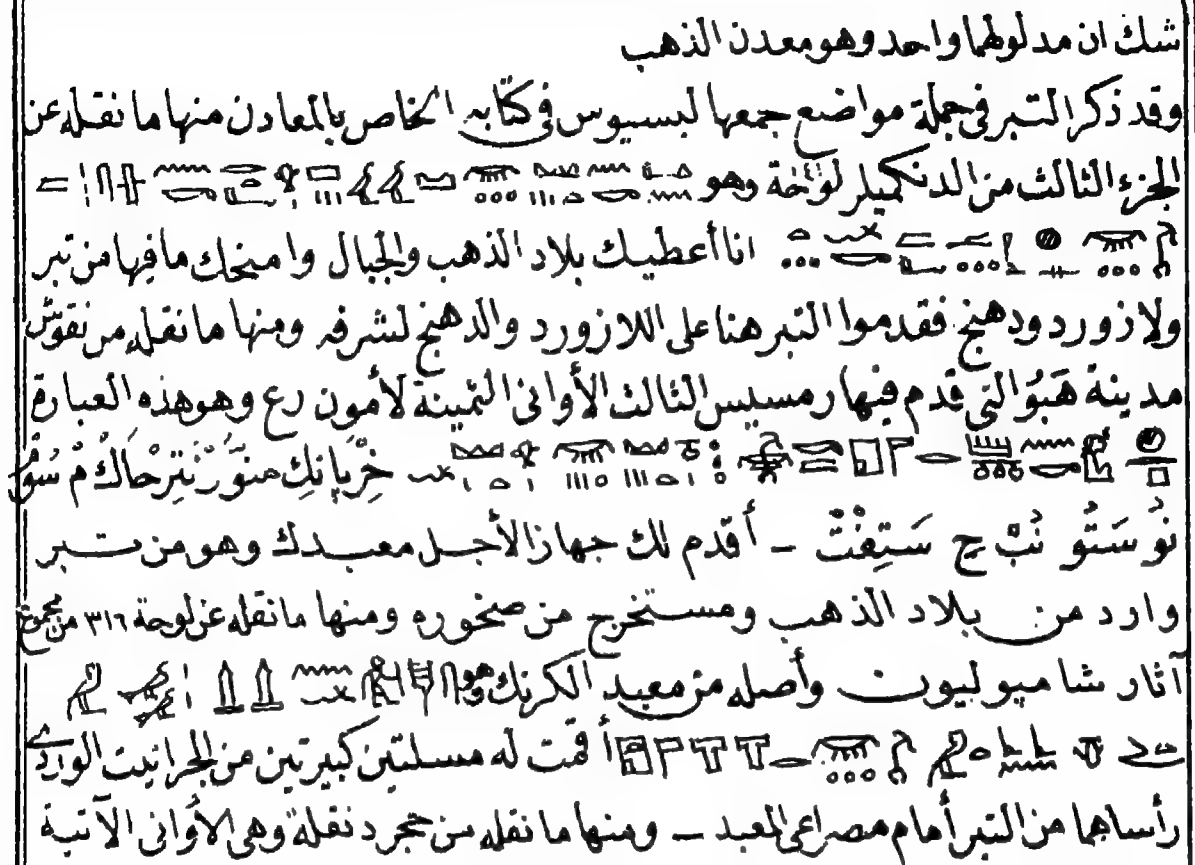 شك ان مدلولهما واحد وهو معدن الذهب
وقد ذكر التبر فى جملة مواضع جمعها لبسيوس فى كتابه الخاص بالمعادن منها ما نقله عن
الجزء الثالث من الدنكميلر لوحة وهو
انا أعطيك بلاد الذهب والجبال وامنحك ما فيها من تبر
ولازورد ودهنج فقدموا التبر هنا على اللازورد والدهنج لشرفه ومنها ما نقله من نقوش
مدينة هَبُو التى قدم فيها رمسيس الثالث الأوانى الثمينة لأمون رع وهو هذه العبارة
نُو سَتُو نُبْ ج سَتِفْتْ – أقدم لك جهازا لأجل معبدك وهو من تبر
وارد من بلاد الذهب ومستخرج من صخوره ومنها ما نقله عن لوحة ٣١٦ من مجموع
آثار شامپوليون وأصله من معبد الكرنك وهو
أقمت له مسلتين كبيرتين من الجرانيت الوردى
رأساهما من التبر أمام مصراعى المعبد – ومنها ما نقله من حجر دنقلة وهى الأوانى الآتية